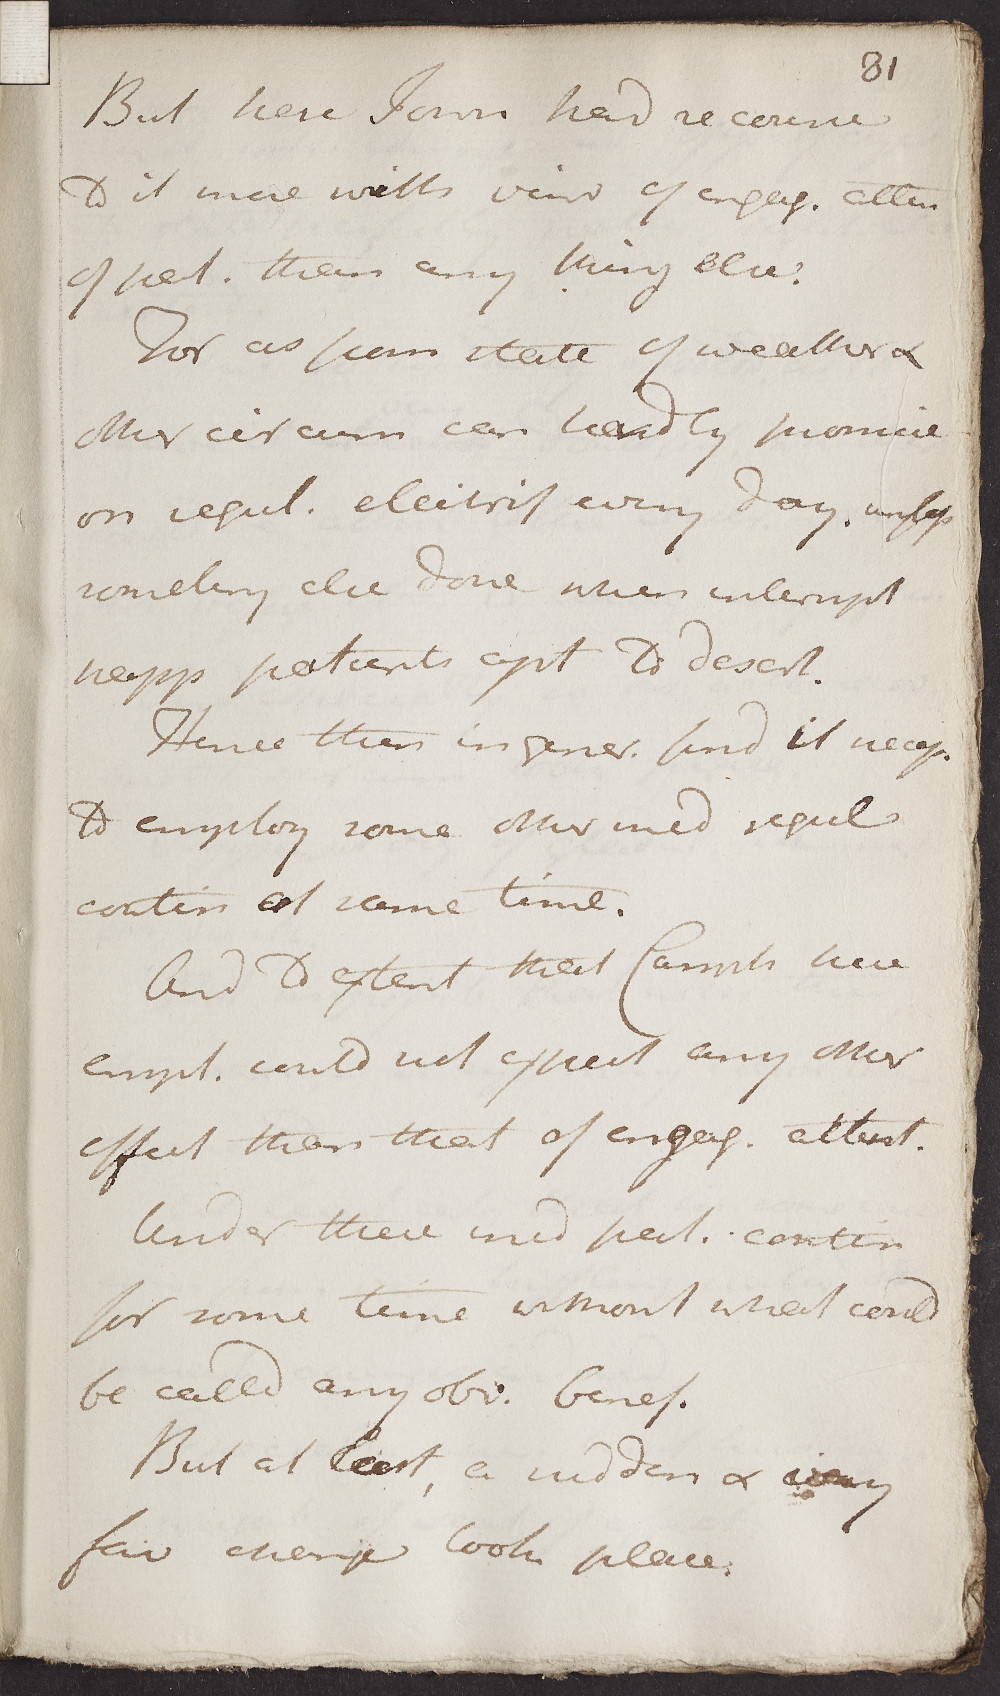 81
But here I own had recourse
to it more with view of engag. atten
of pat. than any thing else.
For as from state of weather &
other circum can hardly promise
on regul. electrif every day, unless
something else done when interrupt
happs patients apt to desert.
Hence then in gener. find it necess.
to employ some other med regul
contin at same time.
And to extent that Camph here
empl. could not expect any other
effect than that of engag. attent.
Under these med pat. contin
for some time without what could
be called any obv. benef.
But at last, a sudden & very
fav change took place.